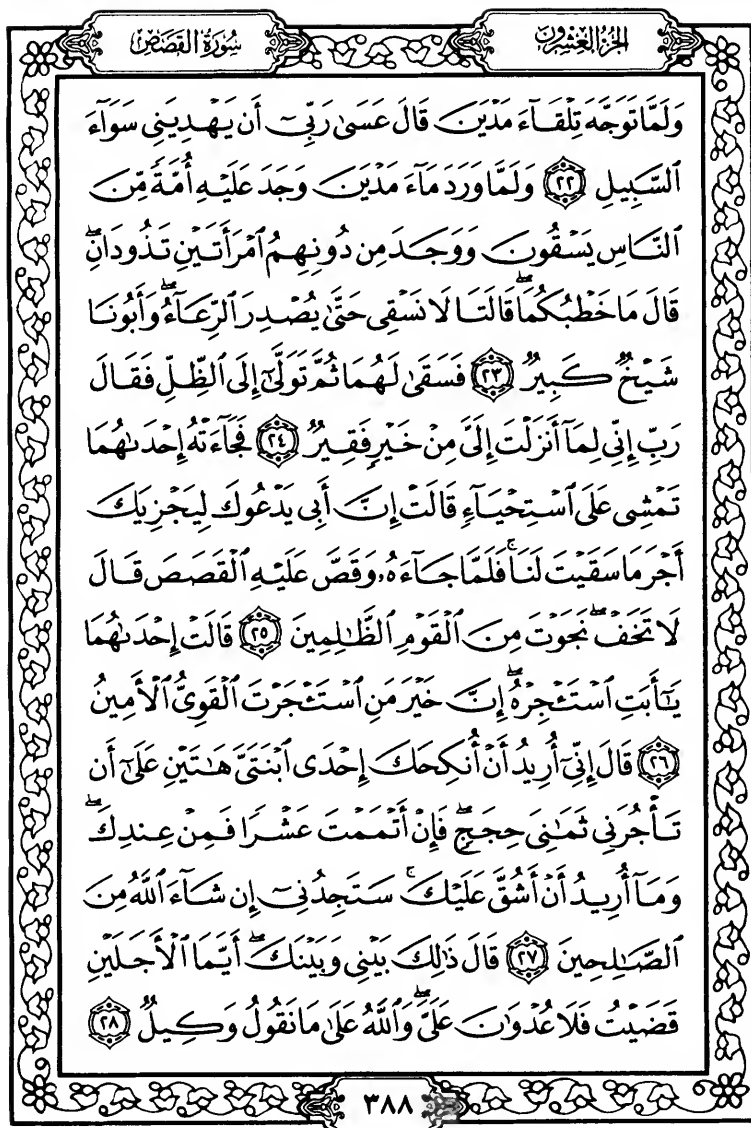 الجزء العشرون
سورة القصص
وَلَمَّا تَوَجَّهَ تِلْقَآءَ مَدْيَنَ قَالَ عَسَىٰ رَبِّىٓ أَن يَهْدِيَنِى سَوَآءَ
ٱلسَّبِيلِ ﴿٢٢﴾ وَلَمَّا وَرَدَ مَآءَ مَدْيَنَ وَجَدَ عَلَيْهِ أُمَّةً مِّنَ
ٱلنَّاسِ يَسْقُونَ وَوَجَدَ مِن دُونِهِمُ ٱمْرَأَتَيْنِ تَذُودَانِۖ
قَالَ مَا خَطْبُكُمَاۖ قَالَتَا لَا نَسْقِى حَتَّىٰ يُصْدِرَ ٱلرِّعَآءُۖ وَأَبُونَا
شَيْخٌ كَبِيرٌ ﴿٢٣﴾ فَسَقَىٰ لَهُمَا ثُمَّ تَوَلَّىٰٓ إِلَى ٱلظِّلِّ فَقَالَ
رَبِّ إِنِّى لِمَآ أَنزَلْتَ إِلَىَّ مِنْ خَيْرٍ فَقِيرٌ ﴿٢٤﴾ فَجَآءَتْهُ إِحْدَىٰهُمَا
تَمْشِى عَلَى ٱسْتِحْيَآءٍ قَالَتْ إِنَّ أَبِى يَدْعُوكَ لِيَجْزِيَكَ
أَجْرَ مَا سَقَيْتَ لَنَاۚ فَلَمَّا جَآءَهُۥ وَقَصَّ عَلَيْهِ ٱلْقَصَصَ قَالَ
لَا تَخَفْۖ نَجَوْتَ مِنَ ٱلْقَوْمِ ٱلظَّٰلِمِينَ ﴿٢٥﴾ قَالَتْ إِحْدَىٰهُمَا
يَٰٓأَبَتِ ٱسْتَـْٔجِرْهُۖ إِنَّ خَيْرَ مَنِ ٱسْتَـْٔجَرْتَ ٱلْقَوِىُّ ٱلْأَمِينُ
﴿٢٦﴾ قَالَ إِنِّىٓ أُرِيدُ أَنْ أُنكِحَكَ إِحْدَى ٱبْنَتَىَّ هَٰتَيْنِ عَلَىٰٓ أَن
تَأْجُرَنِى ثَمَٰنِىَ حِجَجٍۖ فَإِنْ أَتْمَمْتَ عَشْرًا فَمِنْ عِندِكَۖ
وَمَآ أُرِيدُ أَنْ أَشُقَّ عَلَيْكَۚ سَتَجِدُنِىٓ إِن شَآءَ ٱللَّهُ مِنَ
ٱلصَّٰلِحِينَ ﴿٢٧﴾ قَالَ ذَٰلِكَ بَيْنِى وَبَيْنَكَۖ أَيَّمَا ٱلْأَجَلَيْنِ
قَضَيْتُ فَلَا عُدْوَٰنَ عَلَىَّۖ وَٱللَّهُ عَلَىٰ مَا نَقُولُ وَكِيلٌ ﴿٢٨﴾
٣٨٨